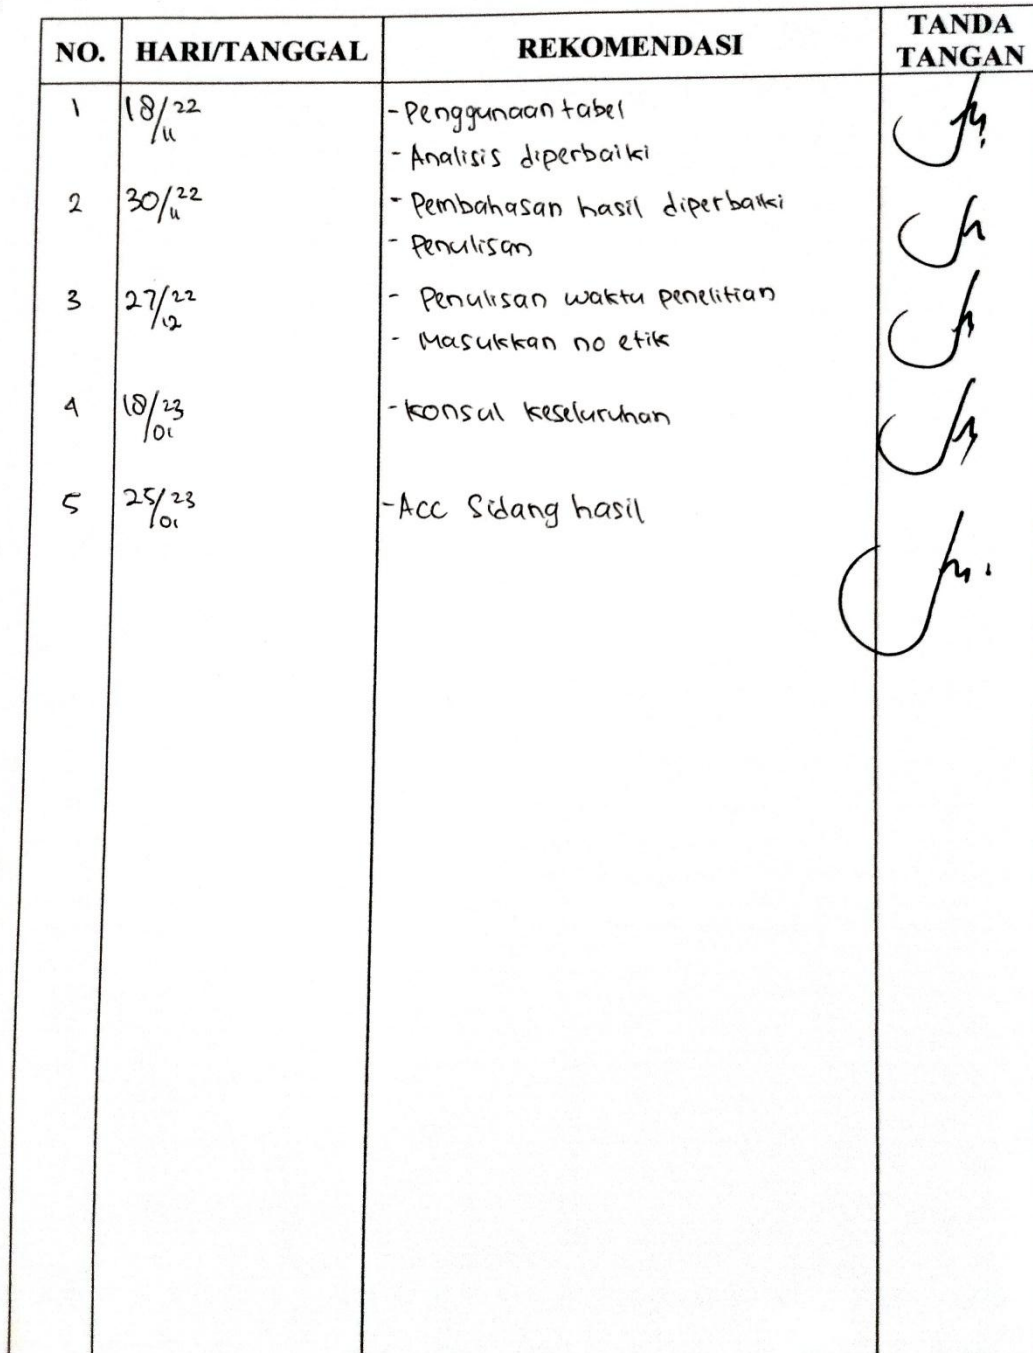 NO. HARI/TANGGAL REKOMENDASI TANDA TANGAN
1 18/11 22 - Penggunaan tabel
- Analisis diperbaiki
2 30/11 22 - Pembahasan hasil diperbaiki
- Penulisan
3 27/12 22 - Penulisan waktu penelitian
- Masukkan no etik
4 18/01 23 - Konsul keseluruhan
5 25/01 23 - Acc Sidang hasil